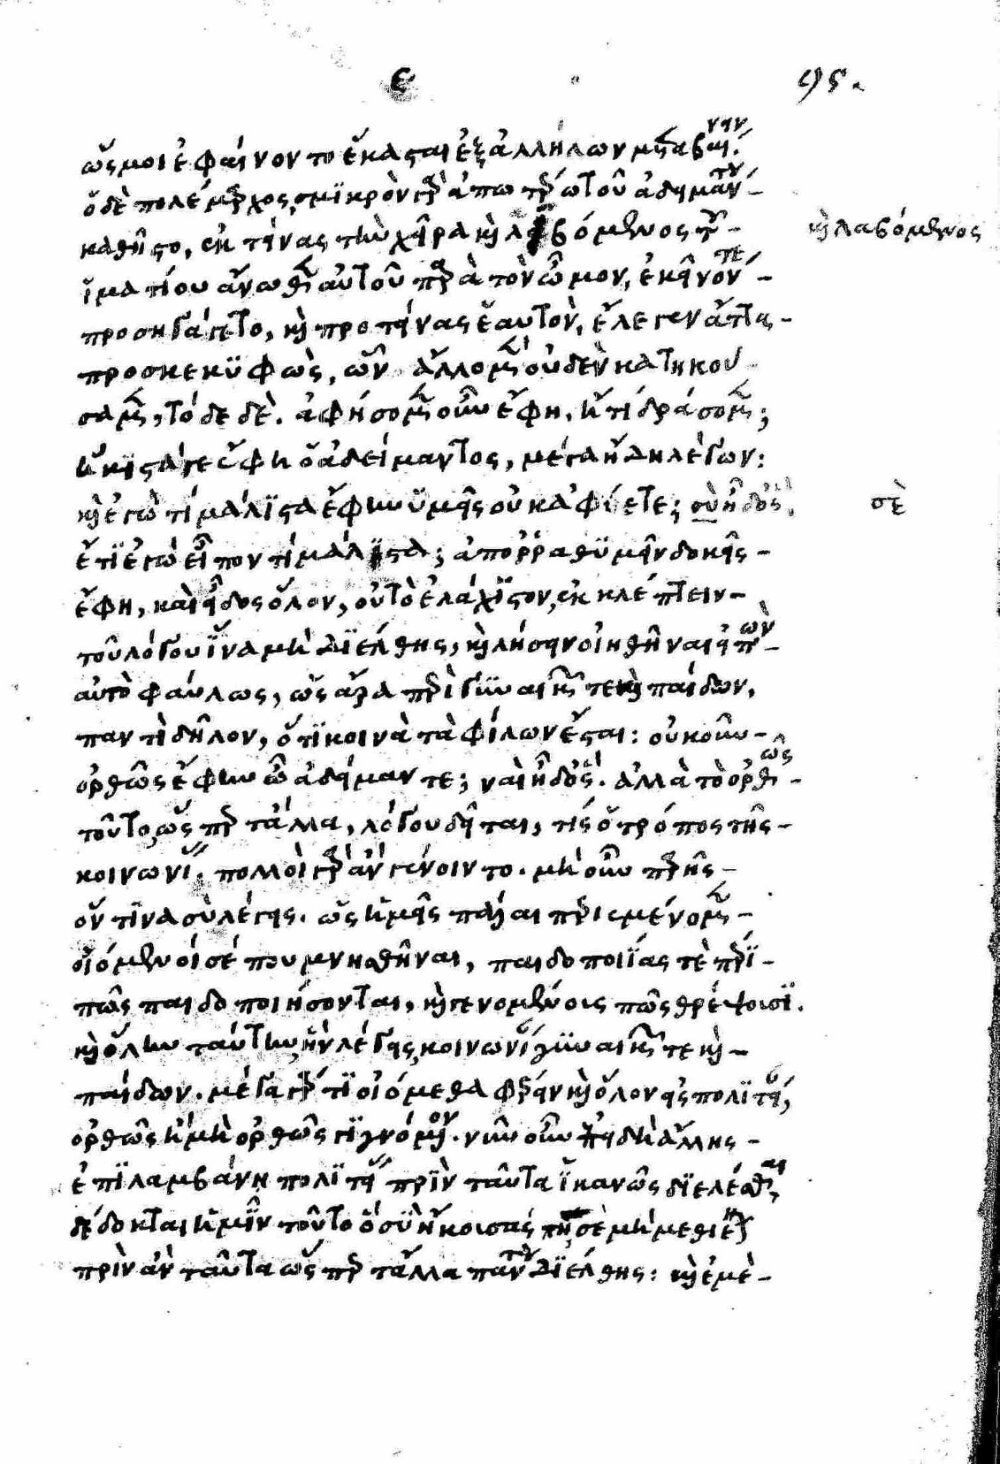 ε
ϙς.
ὥς μοι ἐφαίνοντο ἕκασται ἐξ ἀλλήλων μεταβαίνειν.
ὁ δὲ πολέμαρχος, σμικρὸν γὰρ ἀπωτέρω τοῦ ἀδειμάντου
καθῆστο, ἐκτείνας τὴν χεῖρα καὶ λαβόμενος τοῦ
καὶ λαβόμενος
ἱματίου ἄνωθεν αὐτοῦ παρὰ τὸν ὦμον, ἐκεῖνόν τε
προσηγάγετο, καὶ προτείνας ἑαυτὸν, ἔλεγεν ἄττα
προσκεκυφὼς, ὧν ἄλλο μὲν οὐδὲν κατηκού-
σαμεν, τόδε δὲ. ἀφήσομεν οὖν ἔφη, ἢ τί δράσομεν;
ἥκιστά γε ἔφη ὁ ἀδείμαντος, μέγα ἤδη λέγων:
καὶ ἐγὼ τί μάλιστα ἔφην ὑμεῖς οὐκ ἀφίετε; σὺ ἦ δ' ὅς.
σὲ
ἔτι ἐγὼ εἶπον τί μάλιστα; ἀπορραθυμεῖν δοκεῖς
ἔφη, καὶ εἶδος ὅλον, οὐ τὸ ἐλάχιστον, ἐκκλέπτειν
τοῦ λόγου ἵνα μὴ διέλθῃς, καὶ λήσειν οἰηθῆναι εἰπὼν
αὐτὸ φαύλως, ὡς ἄρα περὶ γυναικῶν τε καὶ παίδων,
παντὶ δῆλον, ὅτι κοινὰ τὰ φίλων ἔσται: οὐκοῦν
ὀρθῶς ἔφην ὦ ἀδείμαντε; ναὶ ἦ δ' ὅς. ἀλλὰ τὸ ὀρθῶς
τοῦτο, ὥσπερ τἄλλα, λόγου δεῖται, τίς ὁ τρόπος τῆς
κοινωνίας. πολλοὶ γὰρ ἂν γένοιντο. μὴ οὖν παρῇς
ὅν τινα σὺ λέγεις. ὡς ἡμεῖς πάλαι περιμένομεν
οἰόμενοί σέ που μνησθῆναι, παιδοποιίας τὲ πέρι
πῶς παιδοποιήσονται, καὶ γενομένους πῶς θρέψουσι.
καὶ ὅλην ταύτην ἣν λέγεις κοινωνίαν γυναικῶν τε καὶ
παίδων. μέγα γάρ τι οἰόμεθα φέρειν καὶ ὅλον εἰς πολιτείαν,
ὀρθῶς ἢ μὴ ὀρθῶς γιγνόμενον. νῦν οὖν ἐπειδὴ ἄλλης
ἐπιλαμβάνῃ πολιτείας πρὶν ταῦτα ἱκανῶς διελέσθαι
δέδοκται ἡμῖν τοῦτο ὃ σὺ ἤκουσας τὸ σὲ μὴ μεθιέναι
πρὶν ἂν ταῦτα ὥσπερ τἄλλα πάντα διέλθῃς: καὶ ἐμὲ